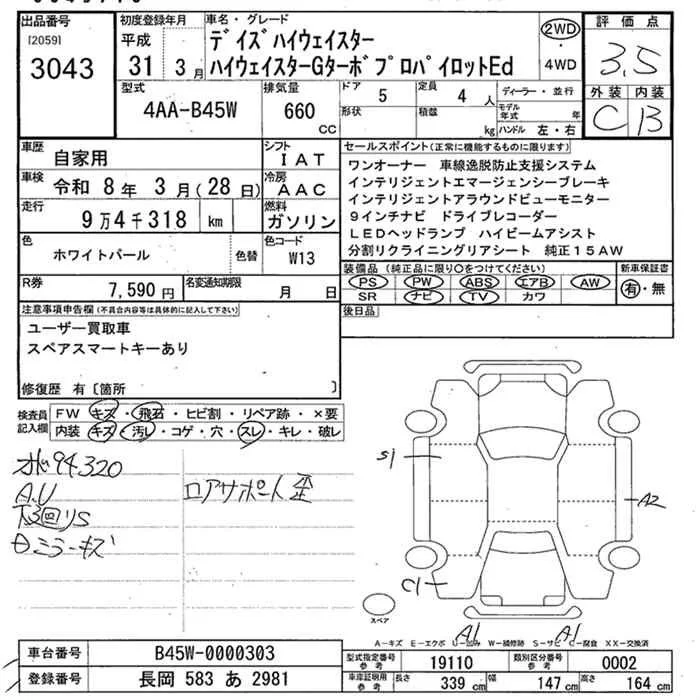 出品番号
[2059]
3043
初度登録年月
平成
31 3月
車名・グレード
デイズハイウェイスター
ハイウェイスターGターボプロパイロットEd
2WD
・
4WD
評価点
3.5
外装 内装
C B
型式
4AA-B45W
排気量
660
cc
ドア
5
形状
定員
4人
積載
kg
ディーラー・並行
モデル年式 年
ハンドル 左・右
車歴
自家用
シフト
IAT
車検
令和 8年 3月(28日)
冷房
AAC
走行
9万4千318 km
燃料
ガソリン
色
ホワイトパール
色替
色コード
W13
R券
7,590円
名変通知期限
月 日
セールスポイント(正常に機能するものに限ります)
ワンオーナー 車線逸脱防止支援システム
インテリジェントエマージェンシーブレーキ
インテリジェントアラウンドビューモニター
9インチナビ ドライブレコーダー
LEDヘッドランプ ハイビームアシスト
分割リクライニングリアシート 純正15AW
装備品(純正品に限り○をつけてください)
PS PW ABS エアB AW
SR ナビ TV カワ
新車保証書
有・無
後日品
注意事項申告欄(不具合内容等は具体的に記入して下さい)
ユーザー買取車
スペアスマートキーあり
修復歴 有〔箇所 〕
検査員記入欄
FW キズ・飛石・ヒビ割・リペア跡・×要
内装 キズ・汚レ・コゲ・穴・スレ・キレ・破レ
94,320
A.U
下3回りS
ミラーキズ
ロアサポート歪
S1
A2
C1
A1
A1
スペア
A-キズ E-エクボ U-凹み W-補修跡 S-サビ C-腐食 XX-交換済
車台番号
B45W-0000303
登録番号
長岡 583 あ 2981
型式指定番号
参考
19110
類別区分番号
参考
0002
車庫証明用
参考
長さ
339 cm
幅
147 cm
高さ
164 cm